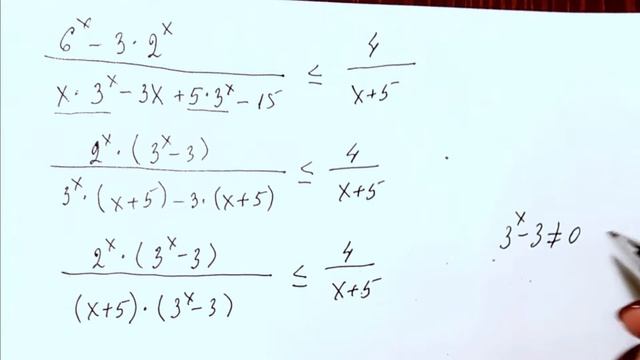 (6^x - 3 · 2^x) / (x · 3^x - 3x + 5 · 3^x - 15) ≤ 4 / (x+5)
(2^x · (3^x - 3)) / (3^x · (x+5) - 3 · (x+5)) ≤ 4 / (x+5)
3^x - 3 ≠ 0
(2^x · (3^x - 3)) / ((x+5) · (3^x - 3)) ≤ 4 / (x+5)